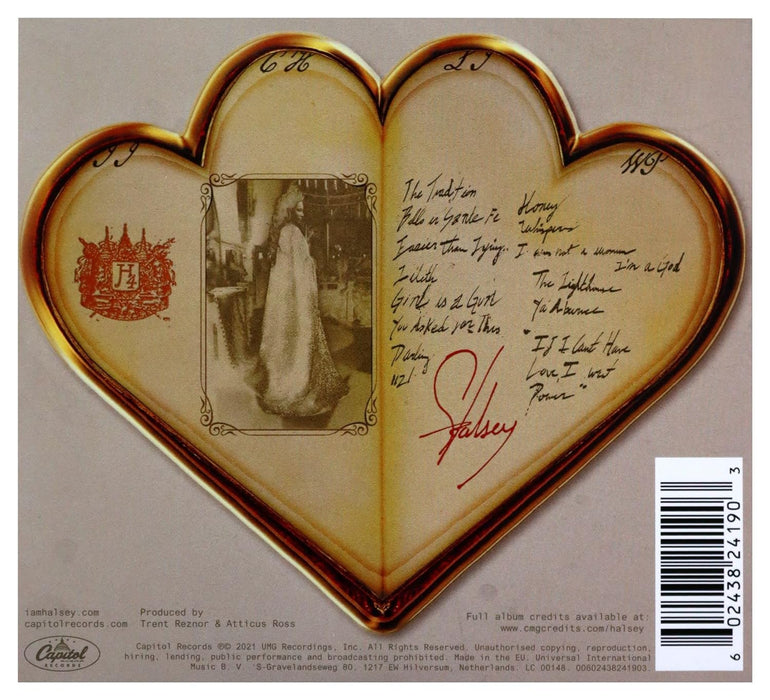 CH
LJ
JJ
WP
H4
The Tradition
Bells in Santa Fe
Easier than Lying
Lilith
Girl is a Gun
You Asked for This
Darling
1121
Honey
Whispers
I am not a woman
I'm a God
The Lighthouse
Ya'aburnee
"If I Can't Have
Love, I want
Power"
Halsey
iamhalsey.com
capitolrecords.com
Produced by
Trent Reznor & Atticus Ross
Full album credits available at:
www.cmgcredits.com/halsey
Capitol
RECORDS
Capitol Records ℗© 2021 UMG Recordings, Inc. All Rights Reserved. Unauthorised copying, reproduction,
hiring, lending, public performance and broadcasting prohibited. Made in the EU. Universal International
Music B. V. 'S-Gravelandseweg 80, 1217 EW Hilversum, Netherlands. LC 00148. 00602438241903.
6 02438 24190 3